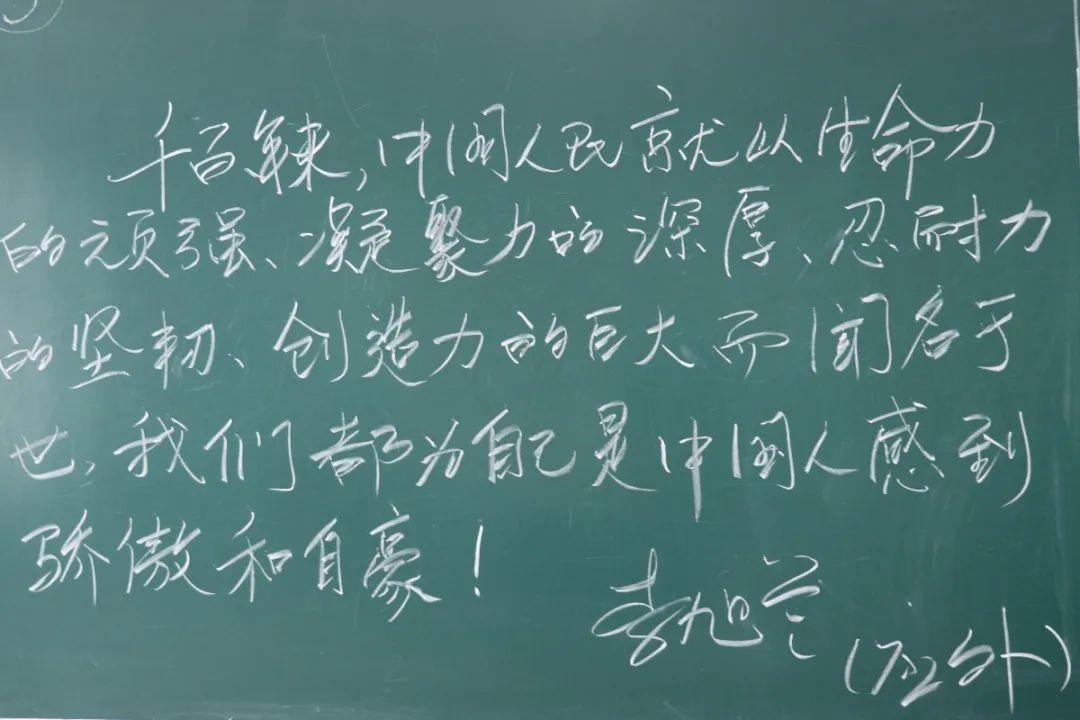 千百年来，中国人民就以生命力
的顽强、凝聚力的深厚、忍耐力
的坚韧、创造力的巨大而闻名于
世，我们都为自己是中国人感到
骄傲和自豪！
李旭兰（应外）